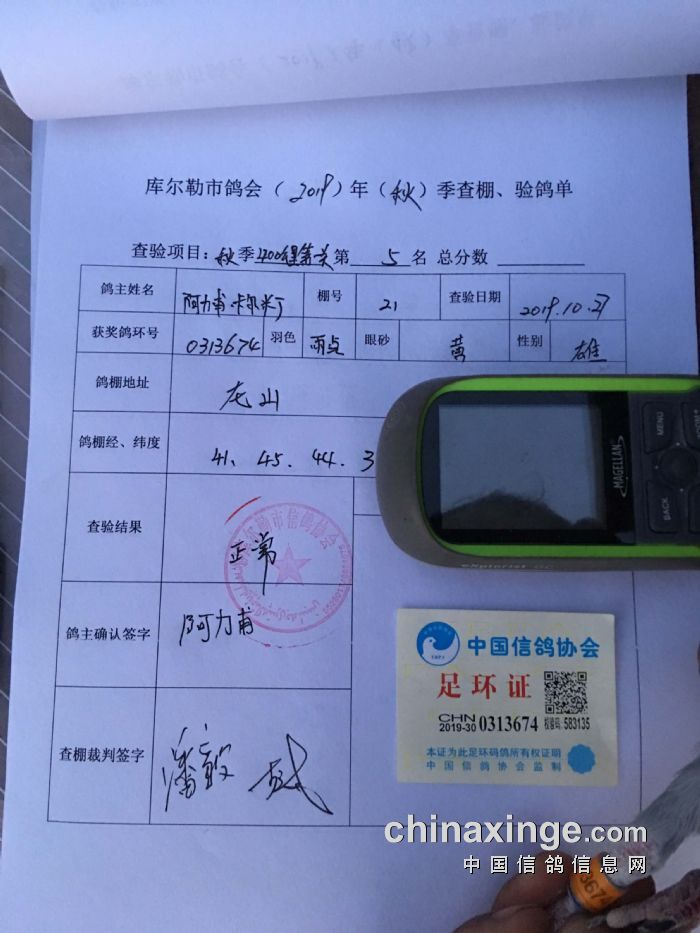 库尔勒市鸽会（2019）年（秋）季查棚、验鸽单
查验项目：秋季 第 5 名 总分数
鸽主姓名 阿力甫·卡尔米丁 棚号 21 查验日期 2019.10.27
获奖鸽环号 0313674 羽色 雨点 眼砂 黄 性别 雄
鸽棚地址 龙山
鸽棚经、纬度 41、45.44.3
查验结果 正常
库尔勒市信鸽协会
鸽主确认签字 阿力甫
查棚裁判签字
MAGELLAN
MENU
BACK
eXplorist GC
中国信鸽协会
足环证
CHN
2019-30 0313674 校验码: 583135
本证为此足环码鸽所有权证明
中国信鸽协会监制
chinaxinge.com
中国信鸽信息网